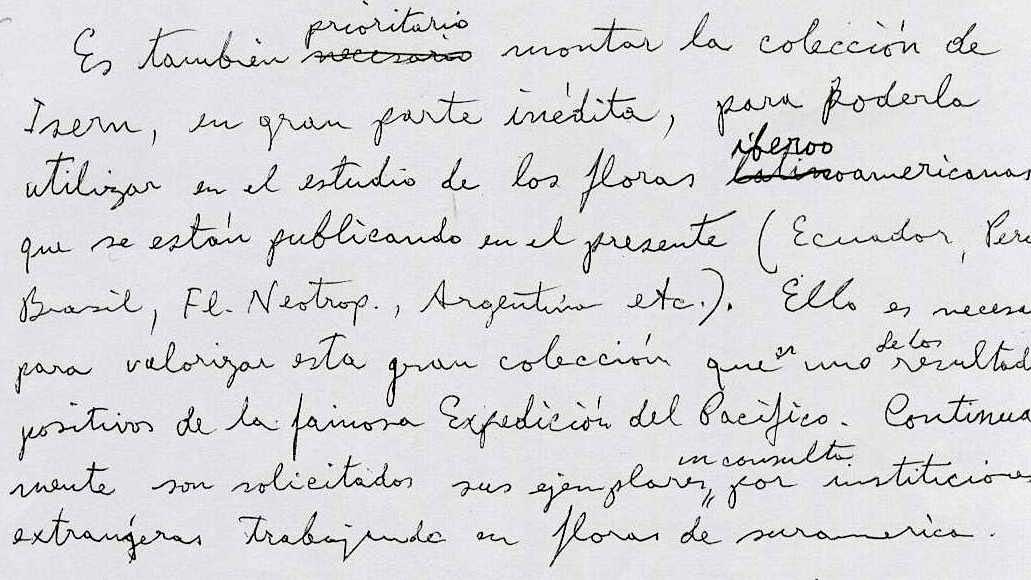 prioritario
Es también necesario montar la colección de
Isern, en gran parte inédita, para poderla
iberoo
utilizar en el estudio de los floras latinoamericanas
que se están publicando en el presente (Ecuador, Perú
Brasil, Fl. Neotrop., Argentina etc.). Ello es necesa
para valorizar esta gran colección que es uno de los resultad
positivos de la famosa Expedición del Pacífico. Continua
in consulta
mente son solicitados sus ejemplares, por institiciones
extrangeras trabajando en floras de suramerica.